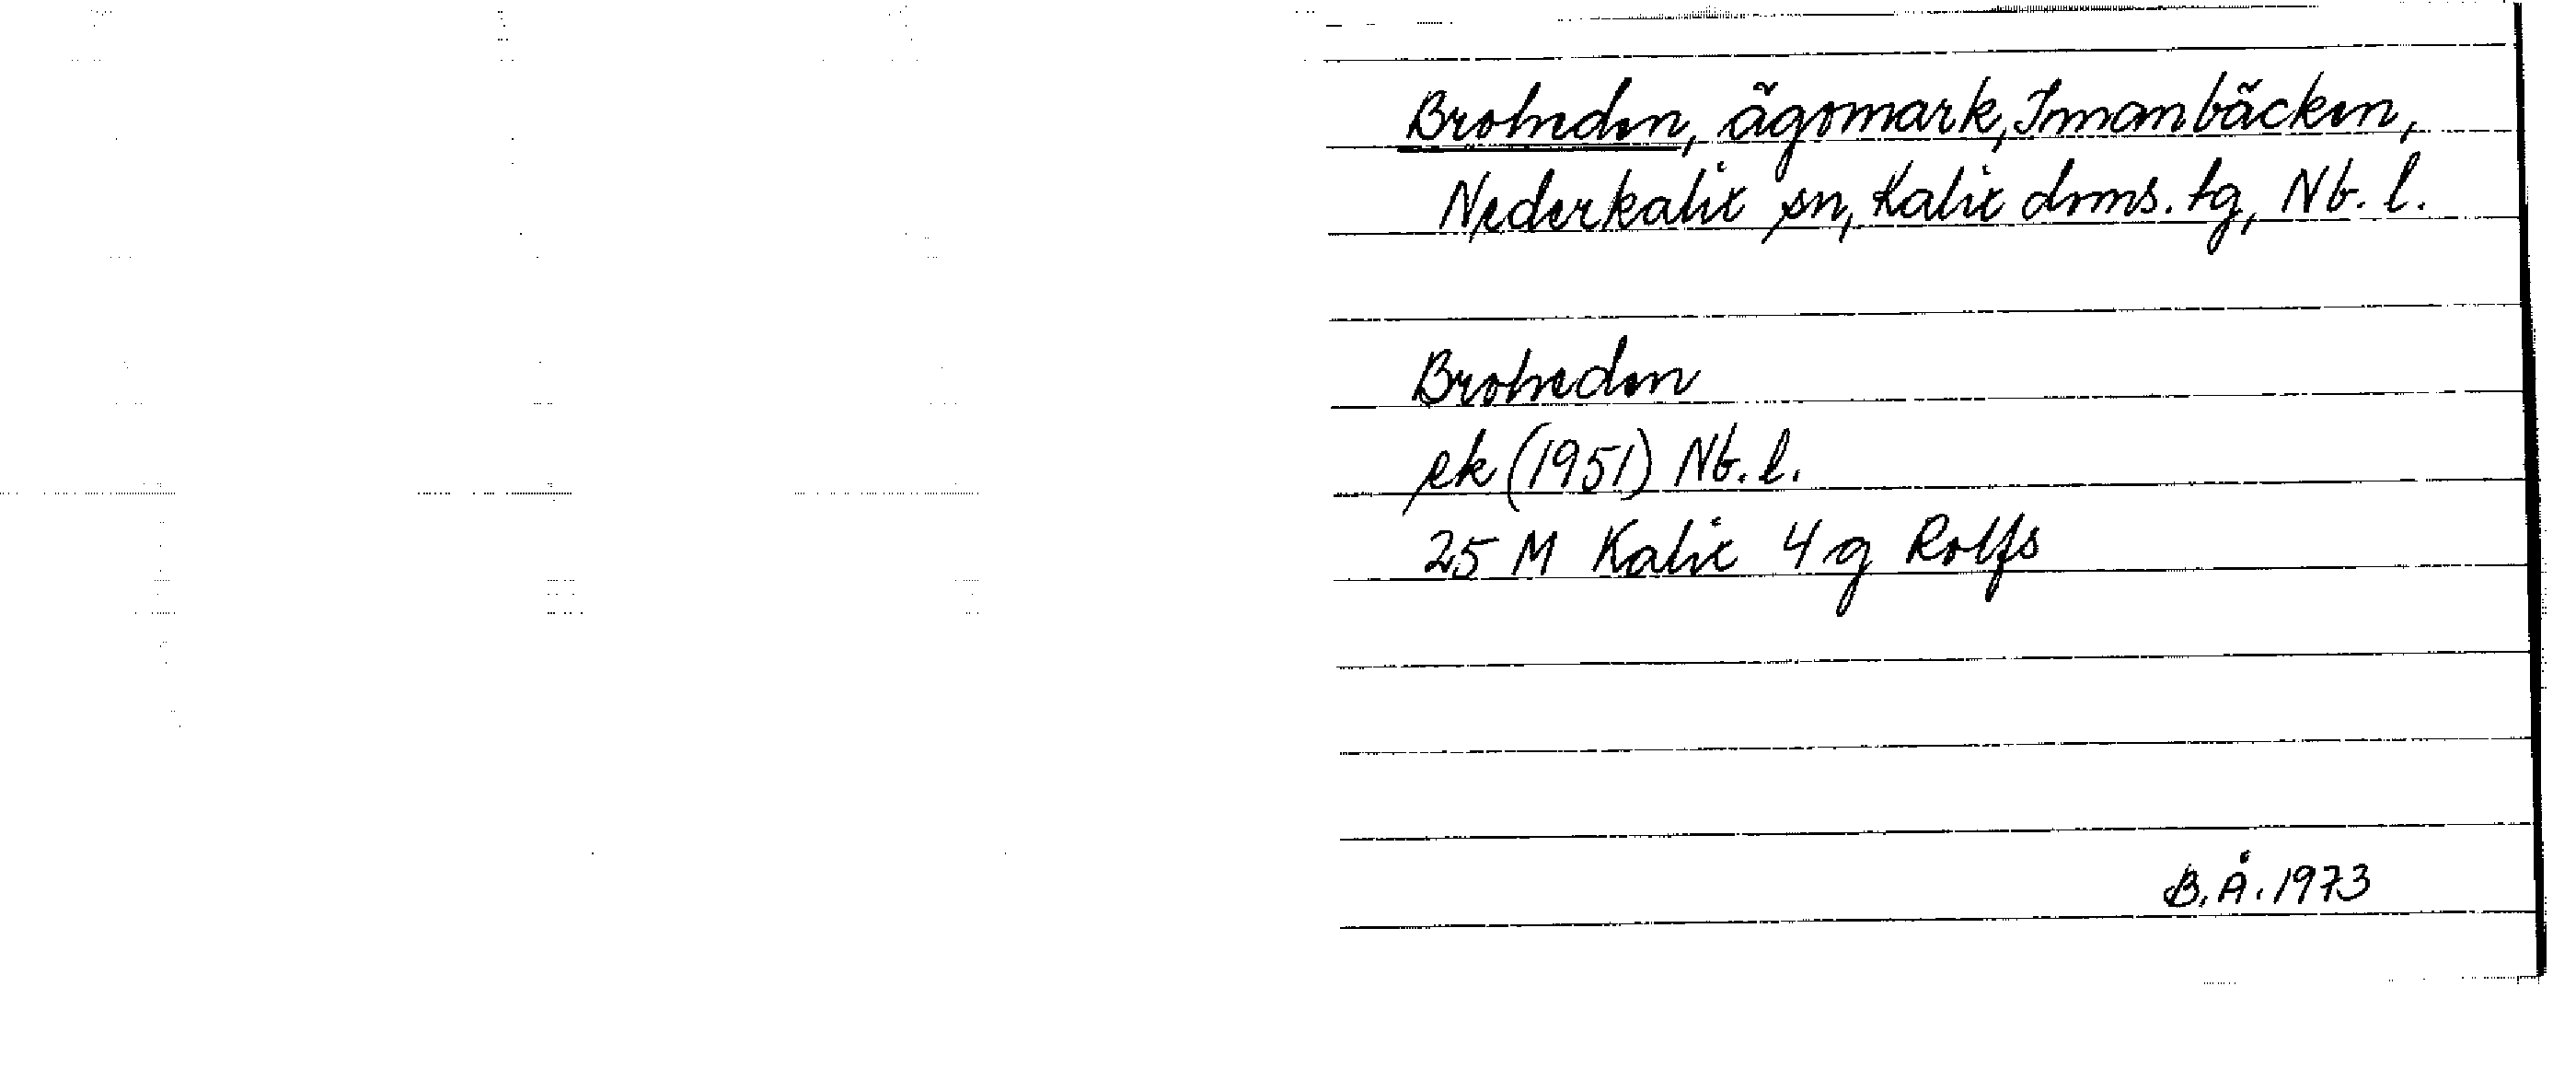 Broheden, ägomark, Innanbäcken,
Nederkalix sn, Kalix doms. tg, Nb. l.
Broheden
ek (1951) Nb. l.
25 M Kalix 4 g Rolfs
B.Å. 1973